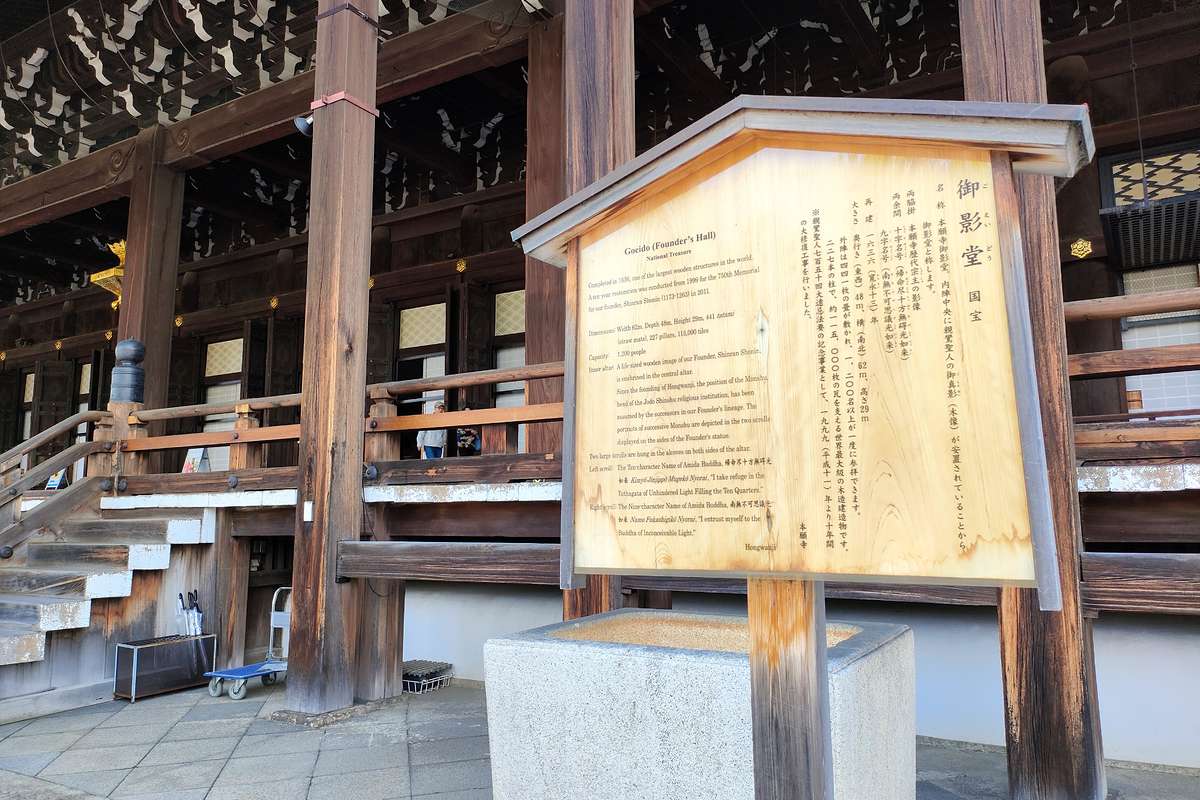 Goeido (Founder's Hall)
National Treasure
Completed in 1636, one of the largest wooden structures in the world.
A ten year restoration was conducted from 1999 for the 750th Memorial
for our founder, Shinran Shonin (1173-1263) in 2011.
Dimensions: Width 62m, Depth 48m, Height 29m, 441 tatami
(straw mats), 227 pillars, 115,000 tiles
Capacity: 1,200 people
Inner altar: A life sized wooden image of our Founder, Shinran Shonin,
is enshrined in the central altar.
Since the founding of Hongwanji, the position of the Monshu,
head of the Jodo Shinshu religious institution, has been
assumed by the successors in our Founder's lineage. The
portraits of successive Monshu are depicted in the two scrolls
displayed on the sides of the Founder's statue.
Two large scrolls are hung in the alcoves on both sides of the altar.
Left scroll: The Ten-character Name of Amida Buddha, 帰命尽十方無碍光
如来 Kimyō Jinjippō Mugekō Nyorai, "I take refuge in the
Tathagata of Unhindered Light Filling the Ten Quarters."
Right scroll: The Nine-character Name of Amida Buddha, 南無不可思議光
如来 Namo Fukashigikō Nyorai, "I entrust myself to the
Buddha of Inconceivable Light."
Hongwanji
御影堂 国宝
ごえいどう
名称 本願寺御影堂。内陣中央に親鸞聖人の御真影(木像)が安置されていることから
御影堂と称します。
両脇掛 本願寺歴代宗主の影像
両余間 十字名号(帰命尽十方無碍光如来)
九字名号(南無不可思議光如来)
再建 一六三六(寛永十三)年
大きさ 奥行き(東西)48m、横(南北)62m、高さ29m
外陣は四四一枚の畳が敷かれ、一、二〇〇名以上が一度に参拝できます。
二二七本の柱で、約一一五、〇〇〇枚の瓦を支える世界最大級の木造建造物です。
※親鸞聖人七百五十回大遠忌法要の記念事業として、一九九九(平成十一)年より十年間
の大修復工事を行いました。
本願寺